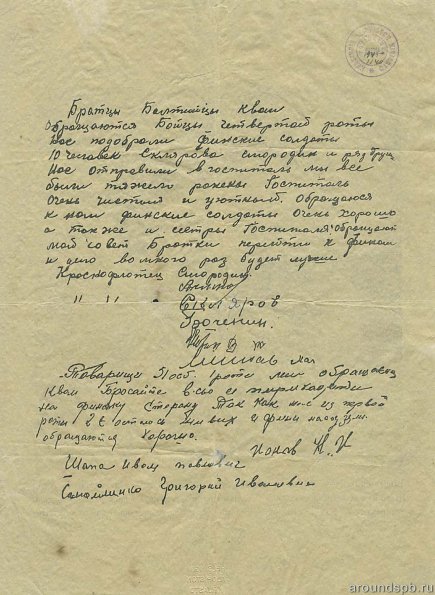 Братцы Балтийцы квам
обращаются Бойцы четвертой роты
нас подобрали финские солдаты
10 человек Склярова Смородин и ряд друг
нас отправили в госпиталь мы все
были тяжело ранены Госпиталь
Очень чистый и уютный. обращаюся
к нам финские солдаты Очень хорошо
а также и сестры Госпиталя обращают
мой совет Братки перейти к финам
и дело во много раз будет лучше
Краснофлотец Смородин
" " " Скляров
Удоченин.
Минаев
Товарищи 51 осб роты мы обращаемся
Квам Бросайте все и переходите
на финску сторону Так как нас из первой
роты 26 осталось живых и фины
обращаются хорошо.
Попов Н. И
Шапа Иван Павлович
Самойленко Григорий Иванович
aroundspb.ru